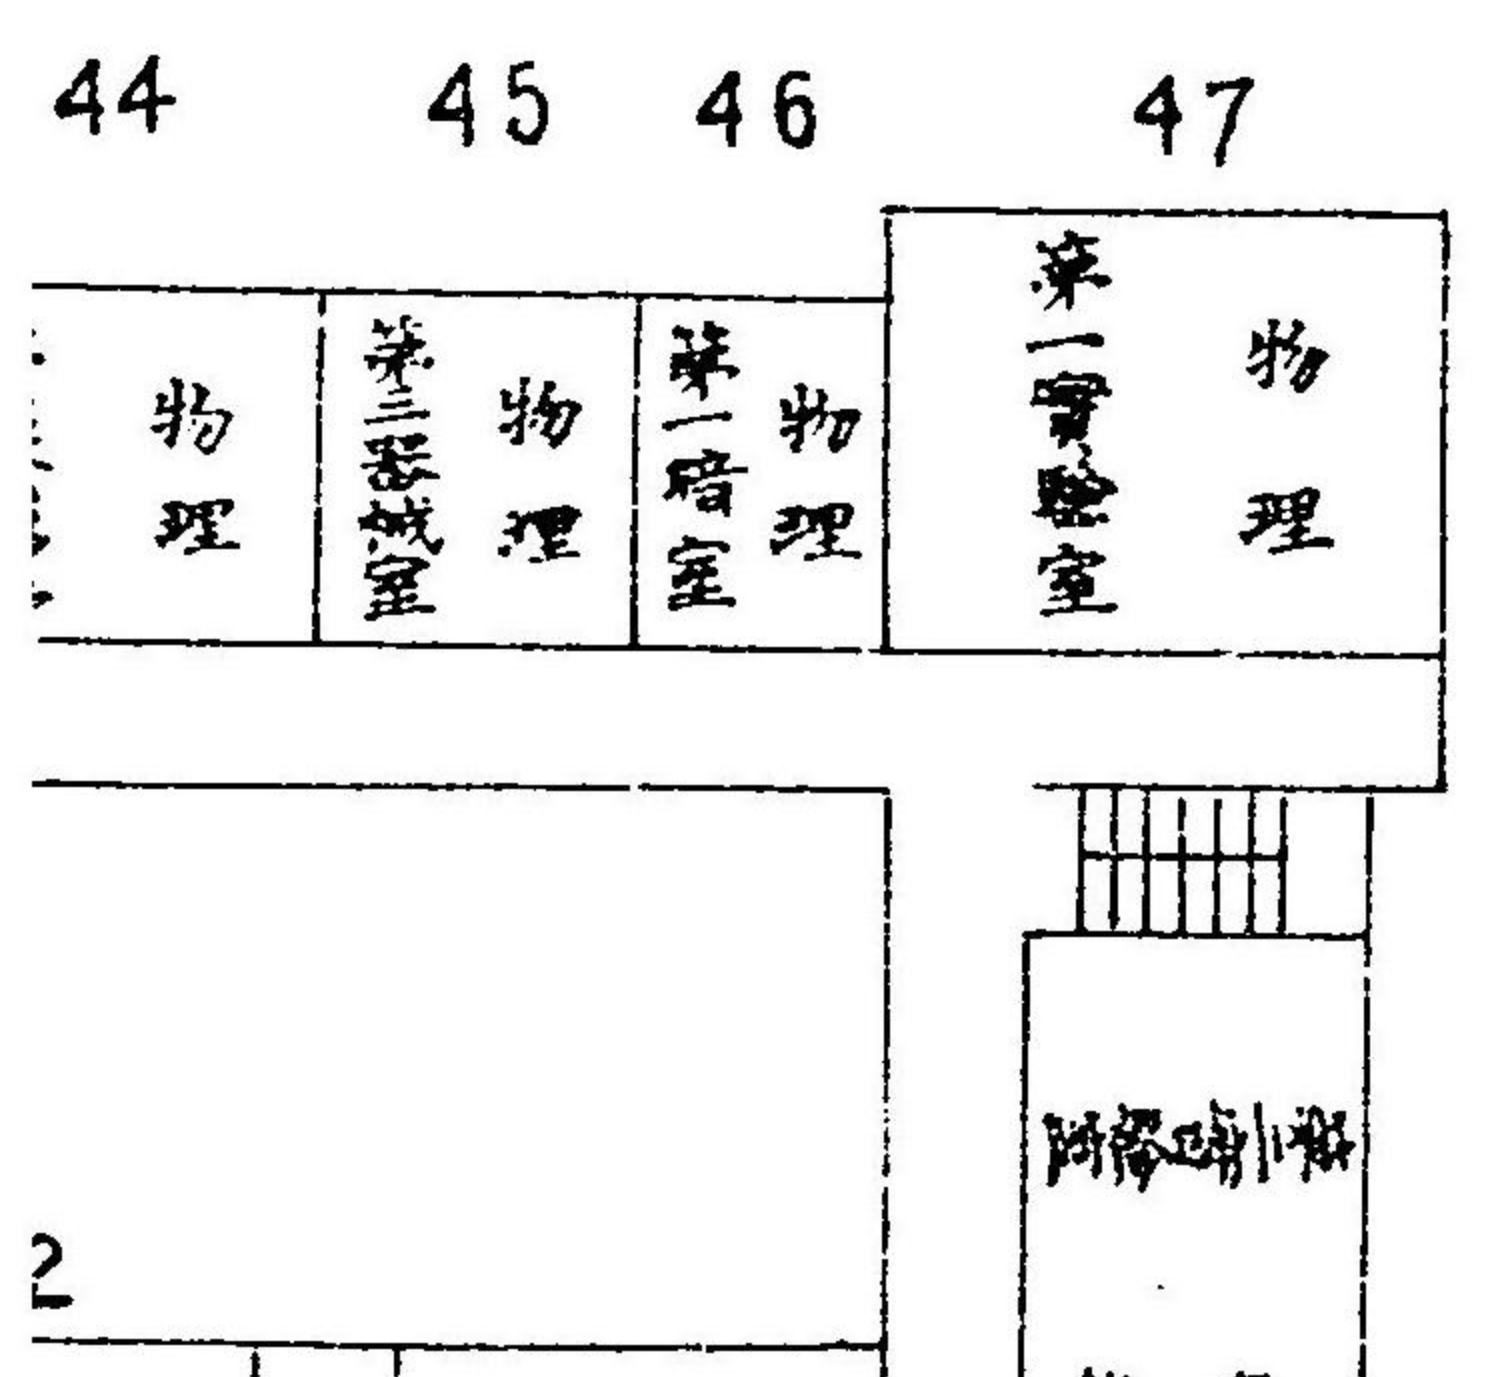 44
45
46
47
物理
物理
第三器械室
物理
第一暗室
物理
第一實驗室
2